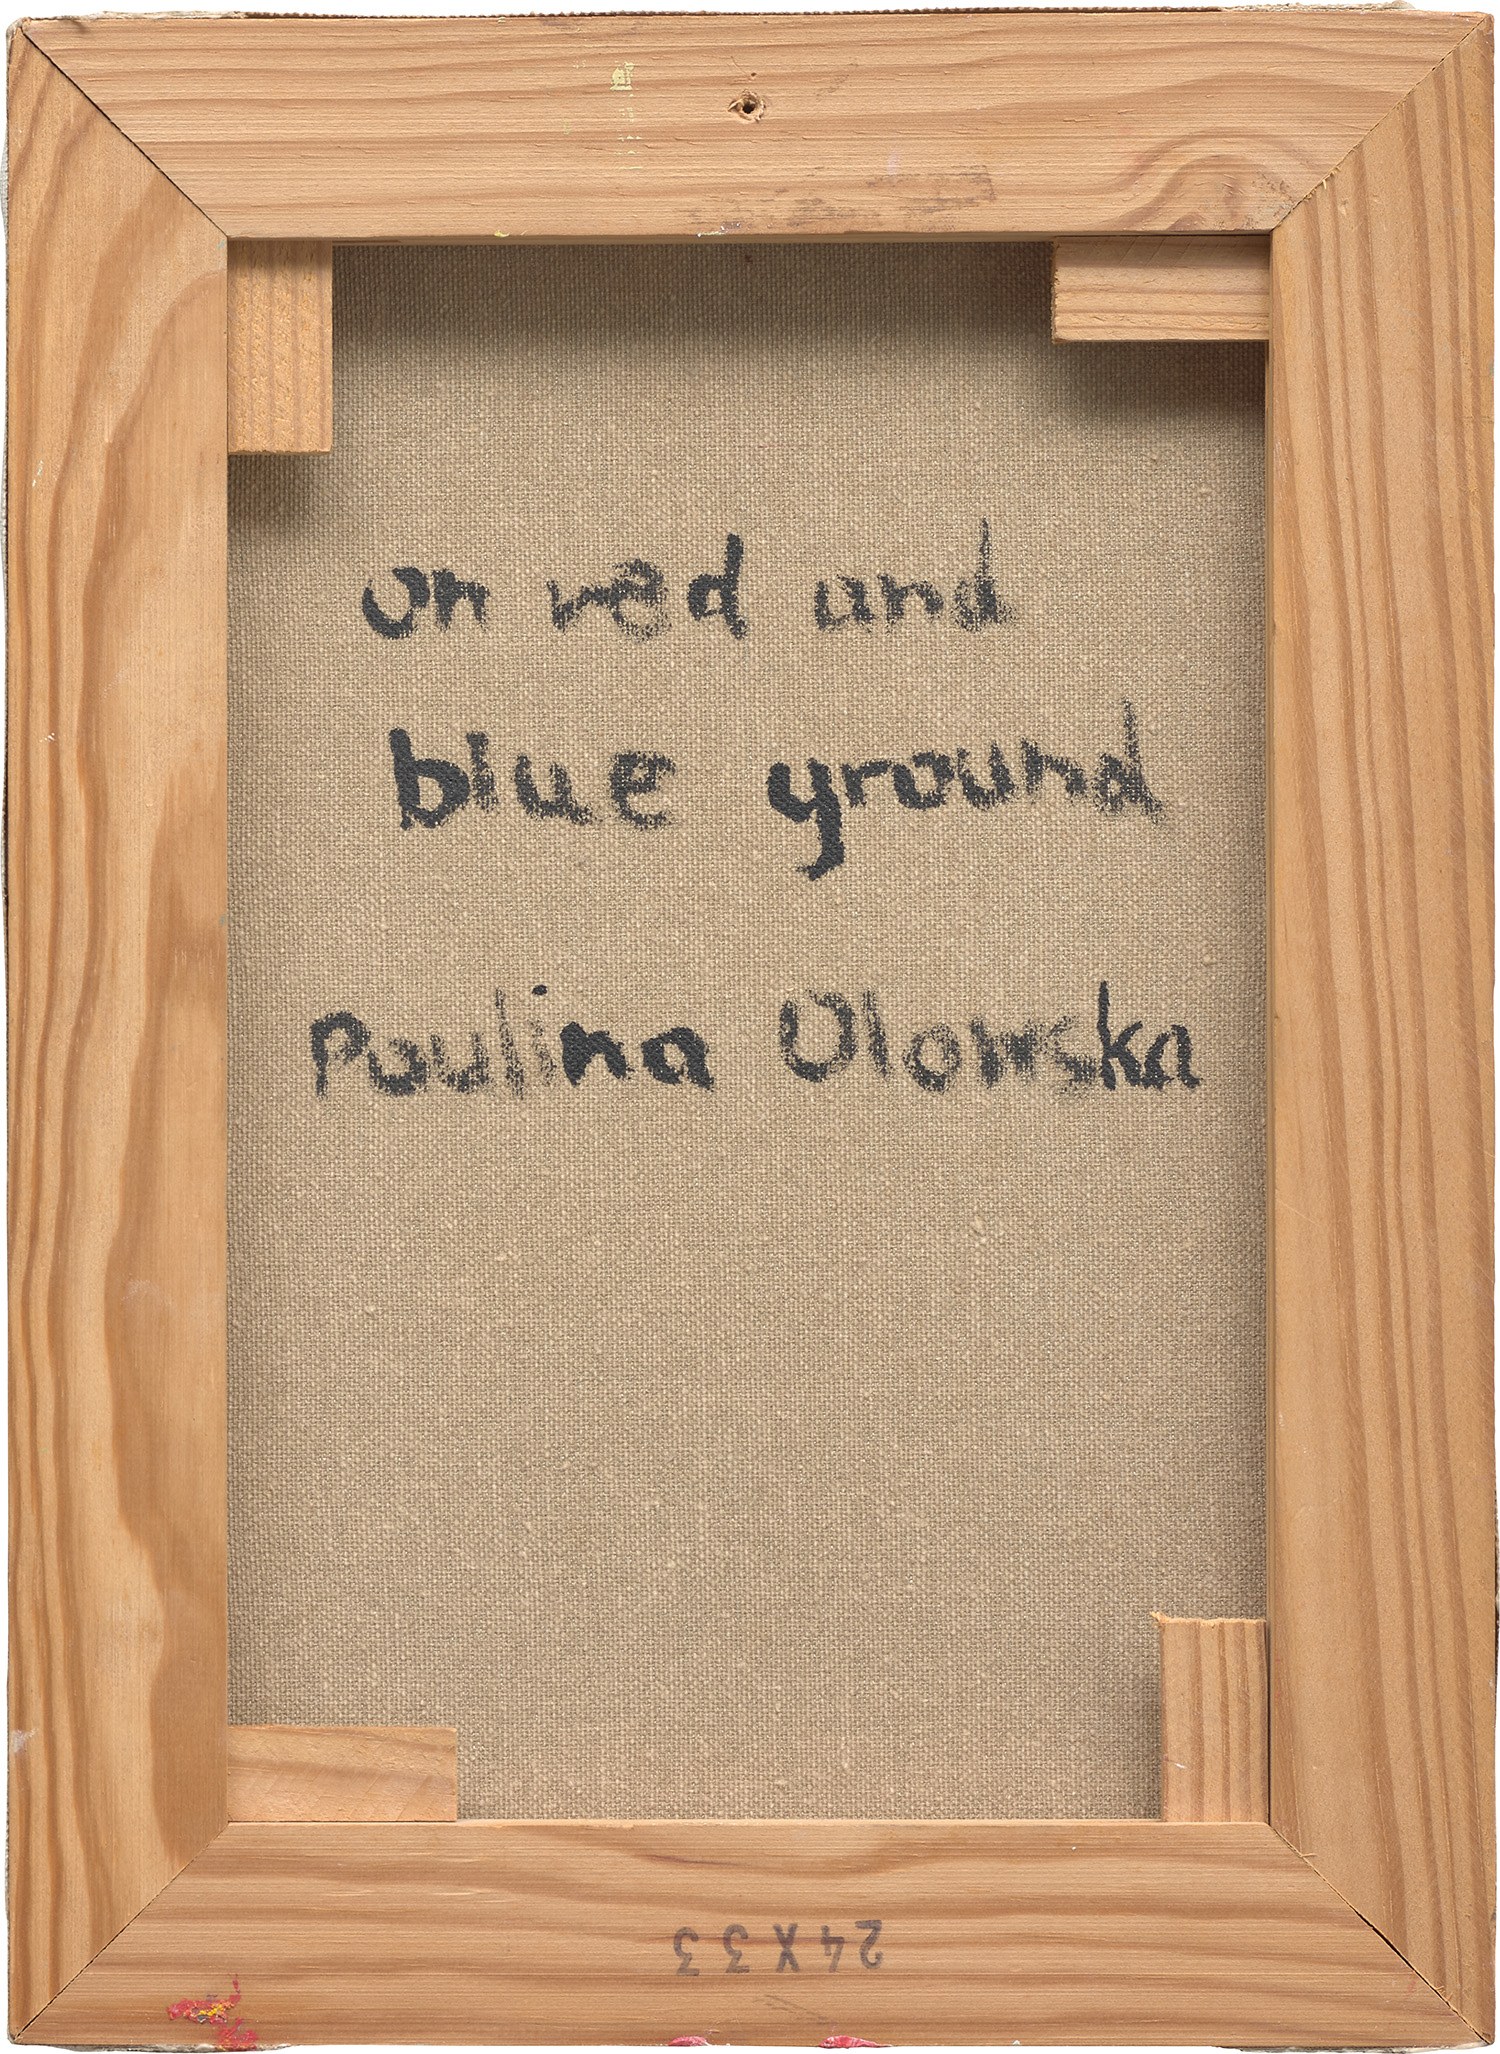 on red and
blue ground
Paulina Olowska
24X33